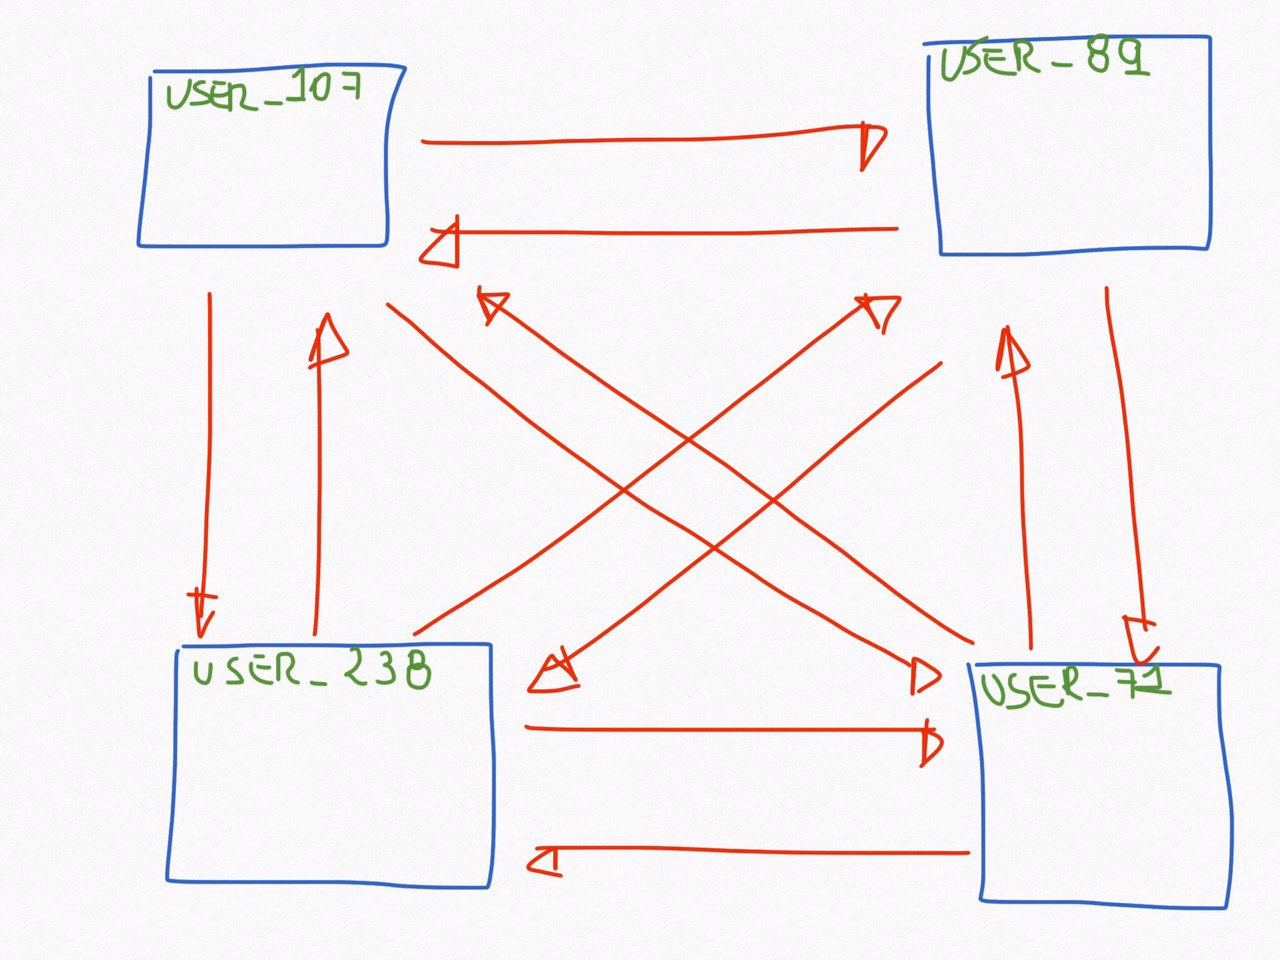 USER_107
USER_89
USER_238
USER_71